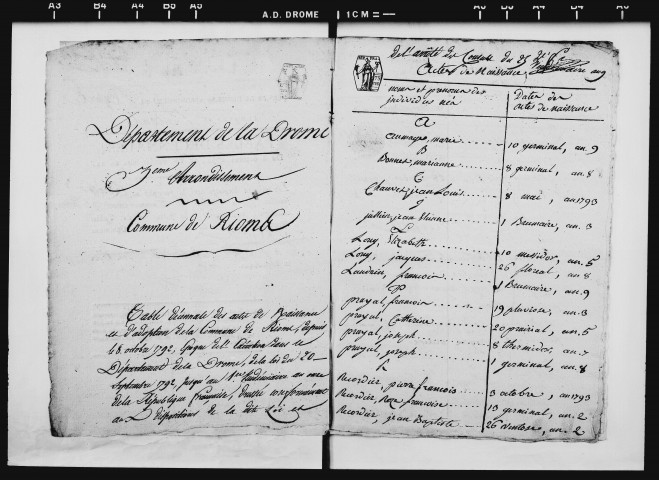 A3 B4 A4 B5 A5 A.D. DROME 1 CM
Département de la Drome
3eme Arrondissement
Commune de Rioms
Table décennale des actes de Naissance
et d'adoption de la Commune de Rioms, depuis
le 8 octobre 1792, Epoque de
Département de la Drome, de la loi du 20
Septembre 1792, jusqu'au 1er Vendémiaire an onze
de la République française, dressée conformément
aux dispositions de la dite Loi et
de l'arrêté des Consuls du 25
Actes de Naissance
noms et prenoms des
individus nés
Dates des
actes de naissance
A
marie 10 germinal, an 9
B
Bonnet, marianne 8 germinal, an 8
C
Chauvet, jean Louis 8 mai, an 1793
J
jullien, jean 1 Brumaire, an 3
L
Long, Elizabeth 10 messidor, an 5
Long, jacques 26 floreal, an 8
Landrin, francois 1 Brumaire, an 9
P
prayal, francois 19 pluviose, an 3
prayal, Catherine 20 prairial, an 5
prayal, joseph 8 thermidor, an 7
prayal, joseph 1 germinal, an 8
R
Recordier, pierre francois 3 octobre, an 1793
Recordier, Rose francoise 13 germinal, an 2
Recordier, jean Baptiste 26 ventose, an 2